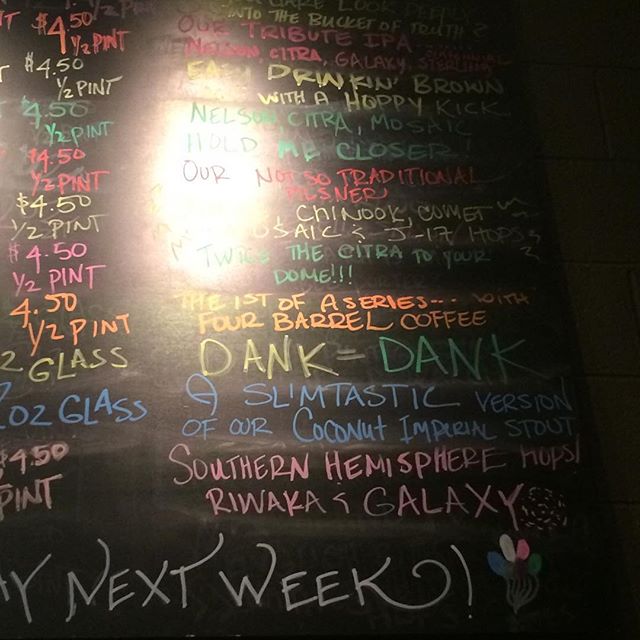 INTO THE BUCKET OF TRUTH?
$4.50 OUR TRIBUTE IPA
1/2 PINT NELSON, CITRA, GALAXY,
$4.50 EASY DRINKIN' BROWN
1/2 PINT WITH A HOPPY KICK
4.50 NELSON, CITRA, MOSAIC
1/2 PINT HOLD ME CLOSER!
$4.50 OUR NOT SO TRADITIONAL
1/2 PINT PILSNER!
$4.50 CHINOOK, COMET
1/2 PINT MOSAIC & J-17 HOPS
$4.50 TWICE THE CITRA TO YOUR
1/2 PINT DOME!!!
4.50 THE 1ST OF A SERIES... WITH
1/2 PINT FOUR BARREL COFFEE
GLASS DANK = DANK
OZ GLASS A SLIMTASTIC VERSION
OF OUR COCONUT IMPERIAL STOUT
$4.50 SOUTHERN HEMISPHERE HOPS!
PINT RIWAKA & GALAXY
NEXT WEEK!